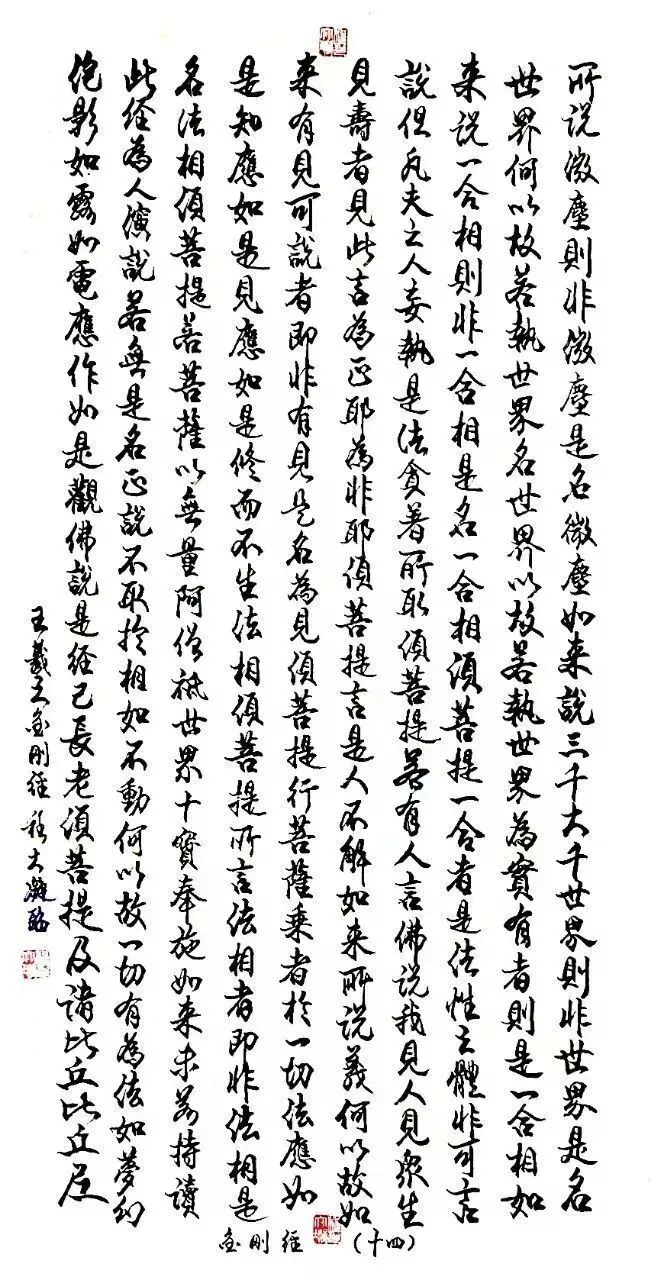 所说微塵則非微塵是名微塵如来說三千大千世界則非世界是名
世界何以故若執世界名世界以故若執世界為實有者則是一合相如
来说一合相則非一合相是名一合相須菩提一合者是法性之體非可言
說但凡夫之人妄執是法貪著所取須菩提若有人言佛說我見人見衆生
見壽者見此言為正耶為非耶須菩提言是人不解如来所说義何以故如
来有見可說者即非有見是名為見須菩提行菩薩乘者於一切法應如
是知應如是見應如是修而不生法相須菩提所言法相者即非法相是
名法相須菩提若菩薩以無量阿僧祇世界十寶奉施如来未若持讀
此经為人演説若無是名正說不取於相如不動何以故一切有為法如夢幻
泡影如露如電應作如是觀佛說是经已長老須菩提及諸比丘比丘尼
王羲之金刚经 大凝
金刚经 (十四)